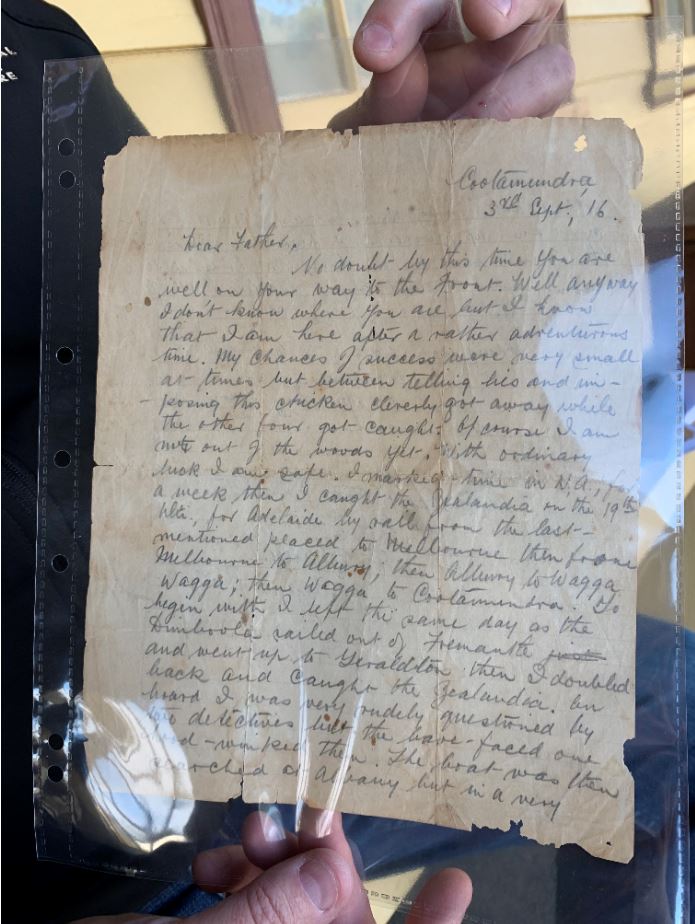 Cootamundra,
3rd Sept, 16.
Dear Father,
No doubt by this time you are
well on your way to the Front. Well anyway
I don't know where you are but I know
that I am here after a rather adventurous
time. My chances of success were very small
at times but between telling lies and im-
-posing this chicken cleverly got away while
the other four got caught. Of course I am
not out of the woods yet. With ordinary
luck I am safe. I marked time in W.A., for
a week then I caught the Zealandia on the 19th
Ult., for Adelaide by rail from the last-
mentioned placed to Melbourne then from
Melbourne to Albury; then Albury to Wagga
Wagga; then Wagga to Cootamundra. To
begin with I left the same day as the
Dimboola sailed out of Fremantle
and went up to Geraldton then I doubled
back and caught the Zealandia. On
board I was very rudely questioned by
two detectives but the bare-faced one
hood-winked them. The boat was then
searched at Albany but in a very